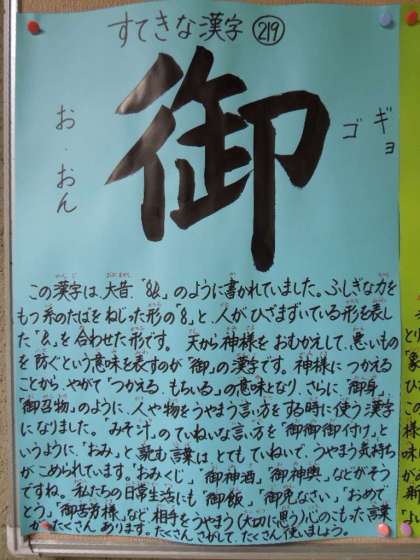 すてきな漢字 219
御
ギョ
ゴ
お・おん
この漢字は、大昔、「」のように書かれていました。ふしぎな力を
もつ糸のたばをねじった形の「8」と、人がひざまずいている形を表し
た「」を合わせた形です。天から神様をおむかえして、悪いもの
を防ぐという意味を表すのが「御」の漢字です。神様につかえる
ことから、やがて「つかえる、もちいる」の意味となり、さらに、「御身」
「御召物」のように、人や物をうやまう言い方をする時に使う漢字
になりました。「みそ汁」のていねいな言い方を「御御御付け」と
いうように、「おみ」と読む言葉はとてもていねいで、うやまう気持ち
がこめられています。「おみくじ」「御神酒」「御神輿」などがそう
ですね。私たちの日常生活にも「御飯」「御免なさい」「おめで
とう」「御苦労様」など相手をうやまう(大切に思う)心のこもった言葉
がたくさんあります。たくさんさがして、たくさん使いましょう。